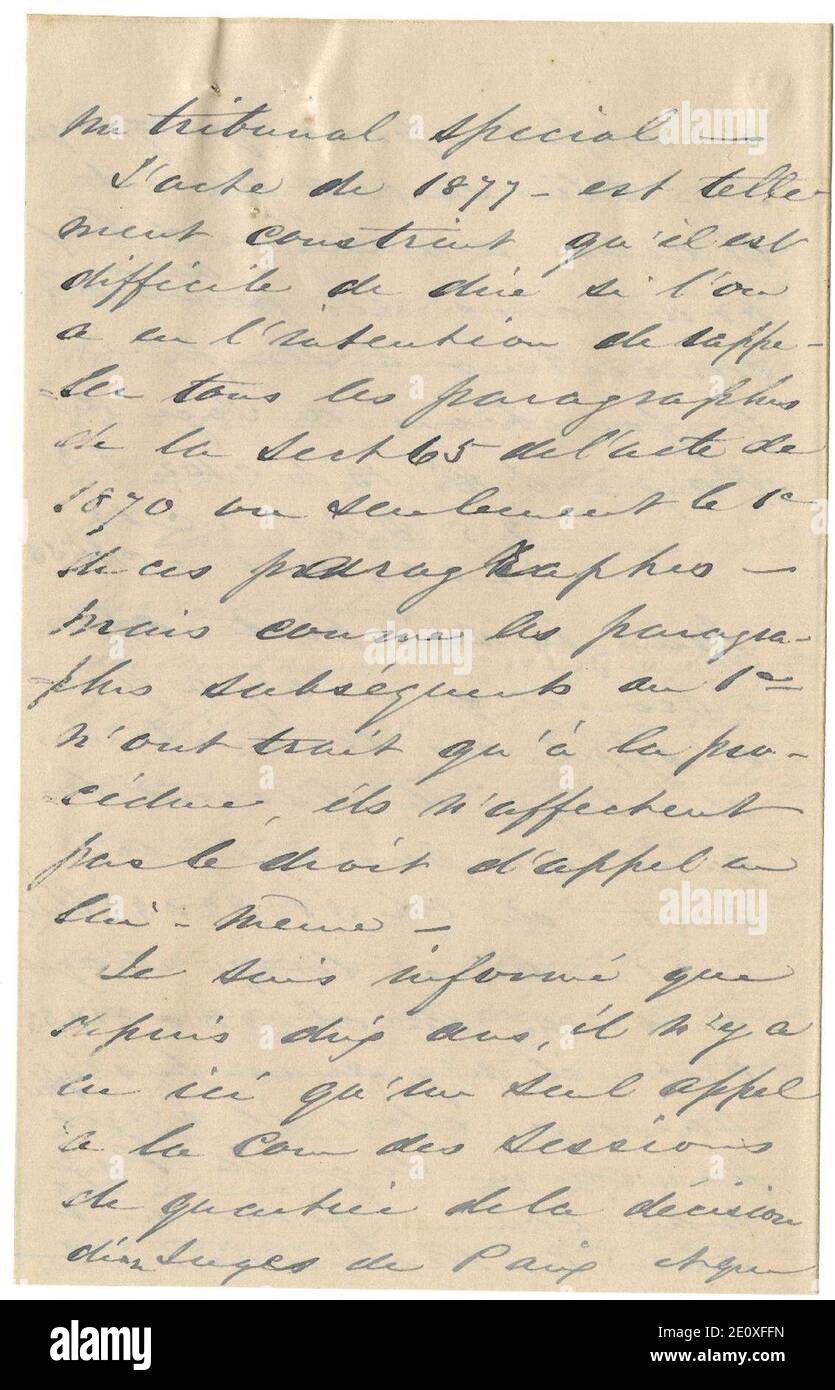 un tribunal special —
L'acte de 1877 - est telle
ment construit qu'il est
difficile de dire si l'on
a eu l'intention de rappe-
ler tous les paragraphes
de la sect 65 de l'acte de
1870 ou seulement le 1er
de ces paragraphes —
mais comme les paragra-
phes subséquents au 1er
n'ont trait qu'à la pro-
cédure, ils n'affectent
pas le droit d'appel en
lui-même —
Je suis informé que
depuis dix ans, il n'y a
eu ici qu'un seul appel
a la Cour des Sessions
de quartier de la décision
Juges de Paix et que
alamy
Image ID: 2E0XFFN
www.alamy.com